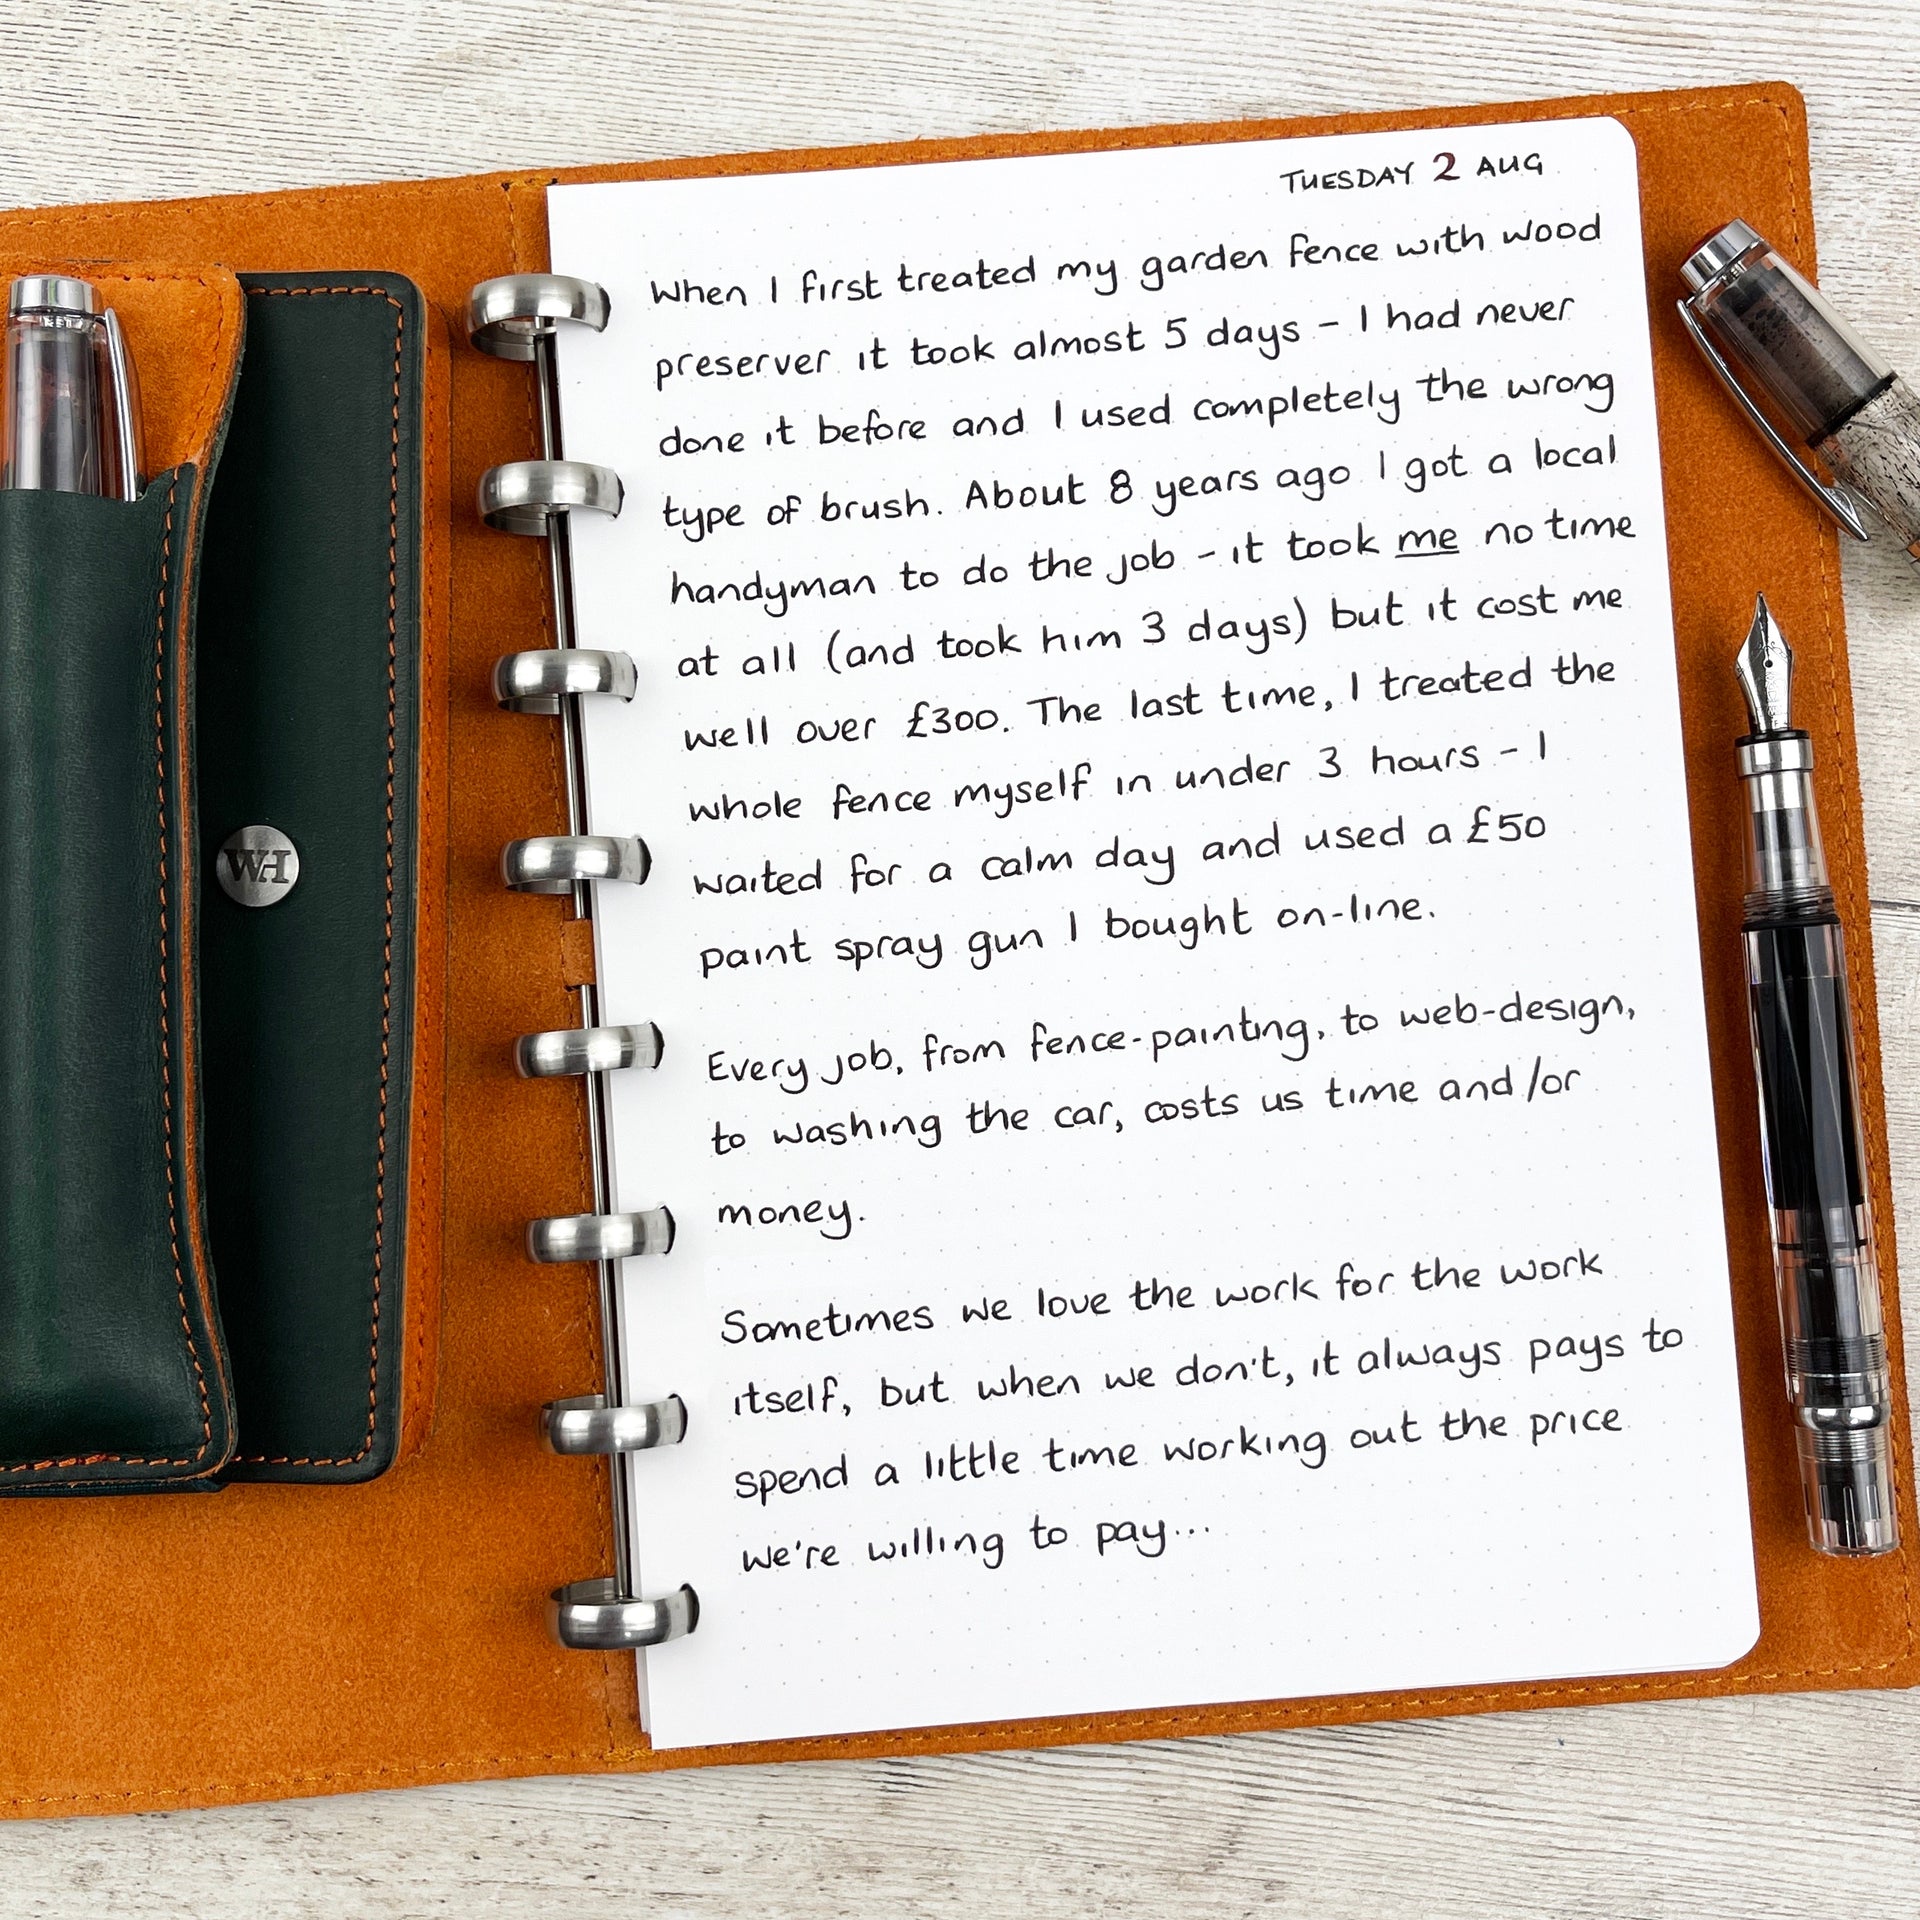 TUESDAY 2 AUG
When I first treated my garden fence with wood
preserver it took almost 5 days – I had never
done it before and I used completely the wrong
type of brush. About 8 years ago I got a local
handyman to do the job – it took me no time
at all (and took him 3 days) but it cost me
well over £300. The last time, I treated the
whole fence myself in under 3 hours – I
waited for a calm day and used a £50
paint spray gun I bought on-line.
Every job, from fence-painting, to web-design,
to washing the car, costs us time and/or
money.
Sometimes we love the work for the work
itself, but when we don't, it always pays to
spend a little time working out the price
we're willing to pay...
WH